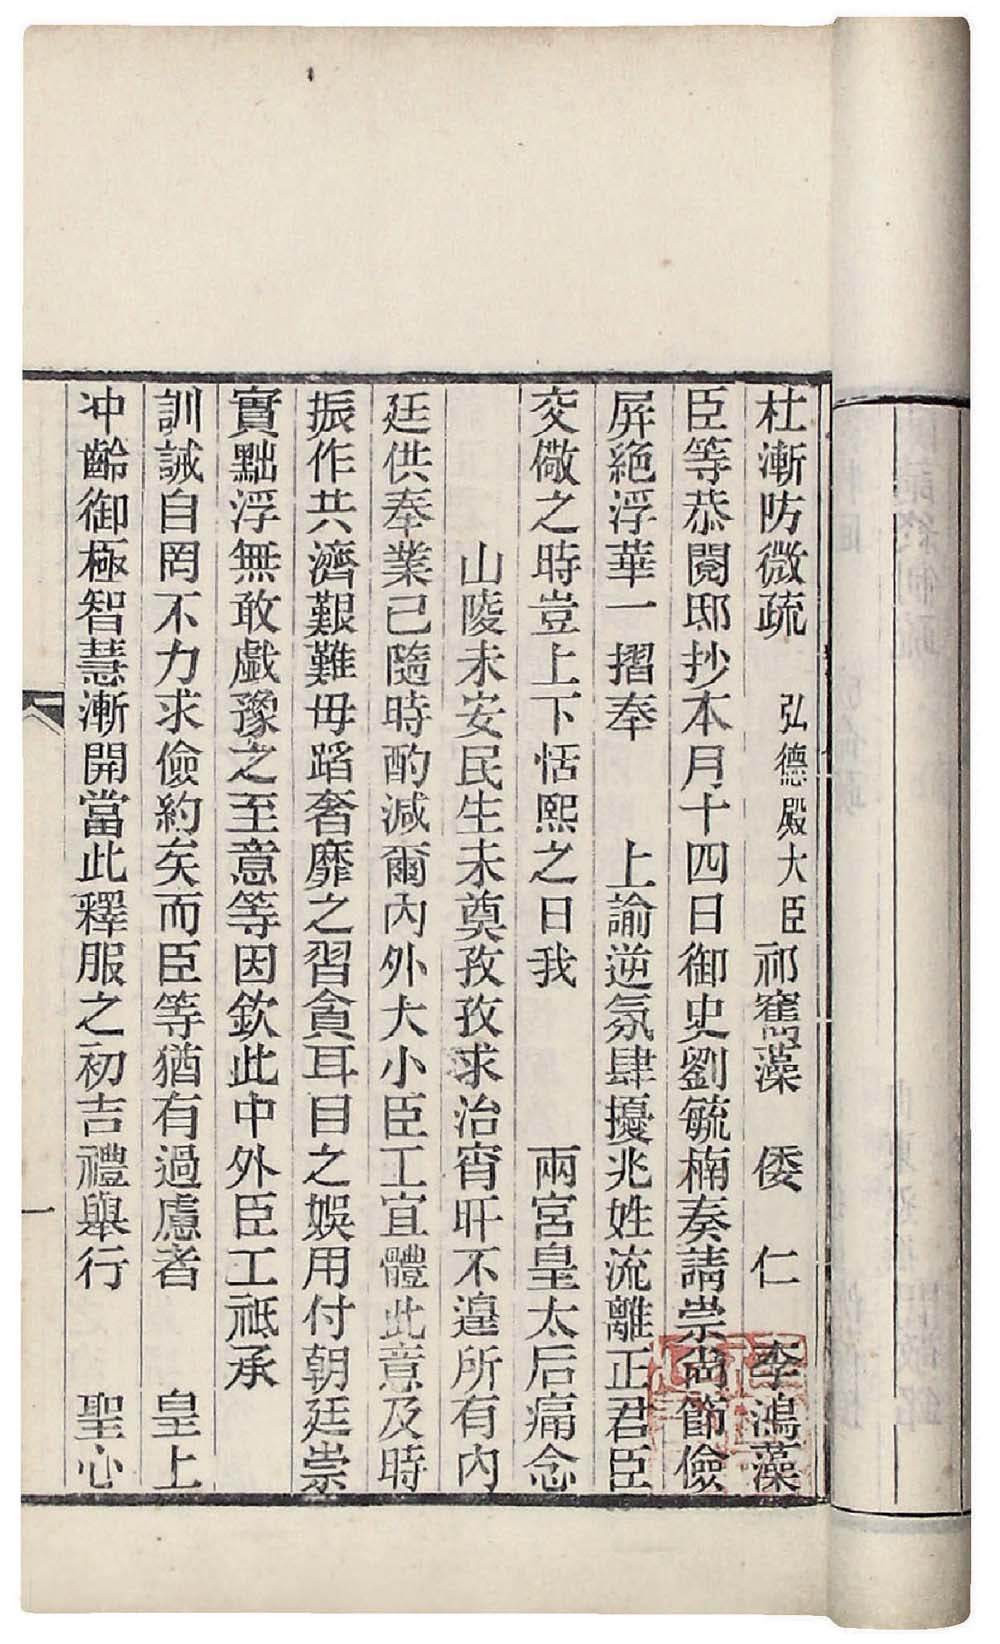 杜漸防微疏 弘德殿大臣祁寯藻 倭 仁 李鴻藻
臣等恭閱邸抄本月十四日御史劉毓楠奏請崇尚節儉
屏絶浮華一摺奉 上諭逆氛肆擾兆姓流離正君臣
交儆之時豈上下恬熙之日我 兩宮皇太后痛念
山陵未安民生未奠孜孜求治宵旰不遑所有內
廷供奉業已隨時酌減爾內外大小臣工宜體此意及時
振作共濟艱難毋蹈奢靡之習貪耳目之娛用付朝廷崇
實黜浮無敢戲豫之至意等因欽此中外臣工祗承
訓誡自罔不力求儉約矣而臣等猶有過慮者 皇上
冲齡御極智慧漸開當此釋服之初吉禮舉行 聖心
一